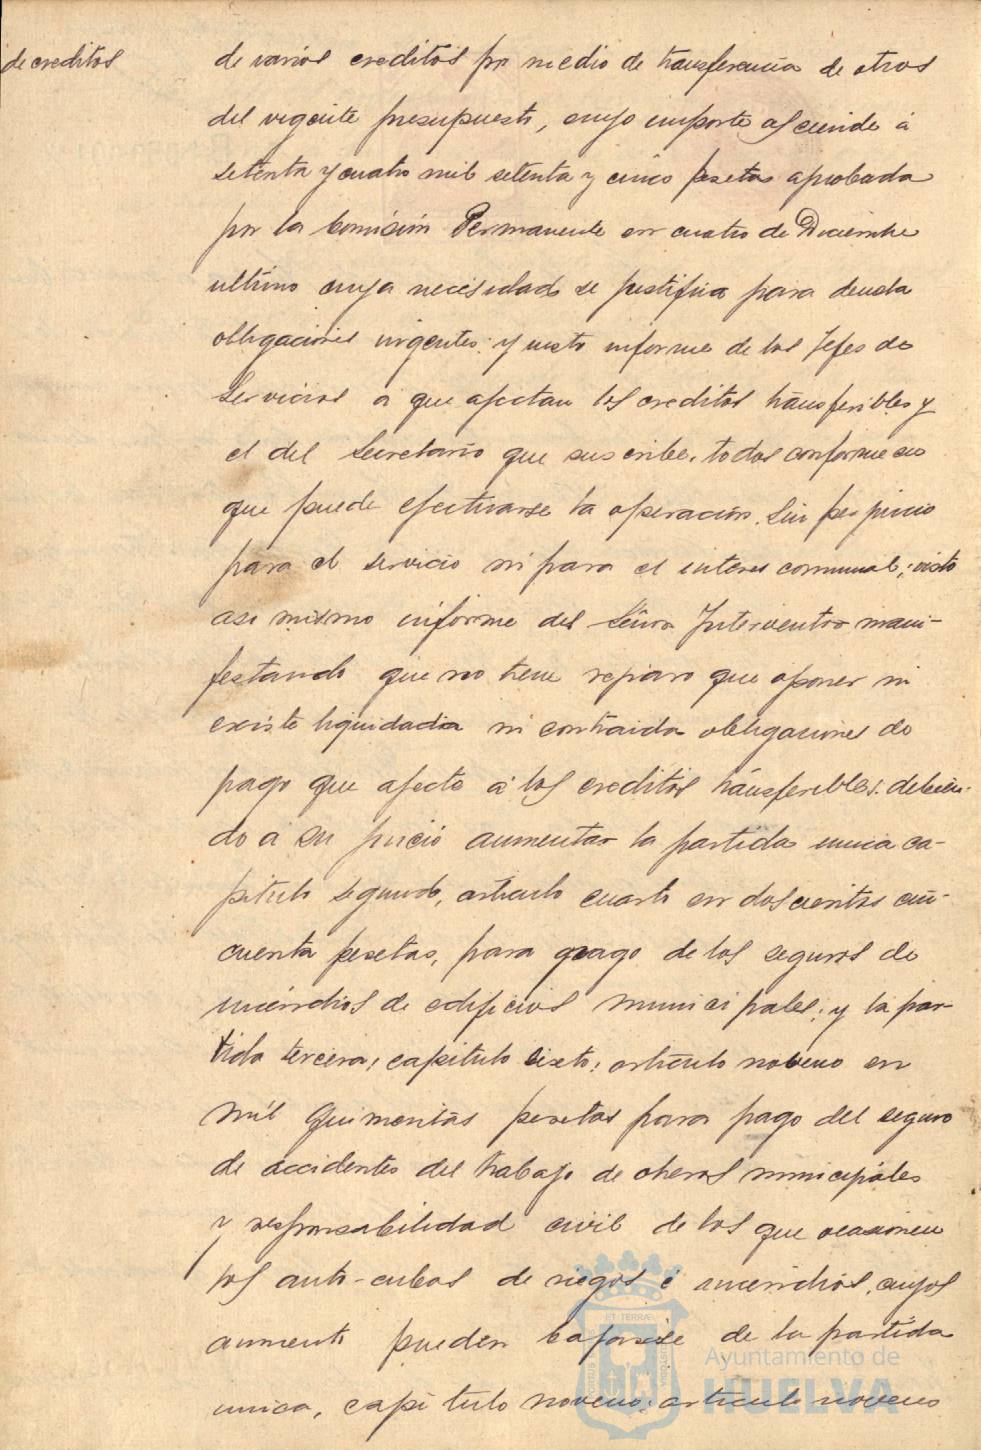 de creditos
de varios creditos por medio de transferencia de otros
del vigente presupuesto, cuyo importe asciende á
setenta y cuatro mil setenta y cinco pesetas aprobada
por la Comisión Permanente en cuatro de Diciembre
ultimo cuya necesidad se justifica para
obligaciones urgentes; y visto informe de los Jefes de
Servicios a que afectan los creditos transferibles y
el del Secretario que suscribe, todos conformes en
que puede efectuarse la operación sin perjuicio
para el servicio ni para el interes comunal; visto
asi mismo informe del Señor Interventor mani-
festando que no tiene reparo que oponer ni
existe liquidada ni contraida obligaciones de
pago que afecte a los creditos transferibles: debien-
do a su juicio aumentar la partida unica ca-
pitulo segundo, articulo cuarto en doscientas cin-
cuenta pesetas, para pago de los seguros de
incendios de edificios municipales; y la par-
tida tercera, capitulo sexto, articulo noveno en
mil quinientas pesetas para pago del seguro
de accidentes del trabajo de obreros municipales
y responsabilidad civil de los que ocasionen
los auto-cubas de riegos é incendios, cuyos
aumento pueden bajarse de la partida
unica, capitulo noveno, articulo noveno
ET TERRÆ
Ayuntamiento de
HUELVA